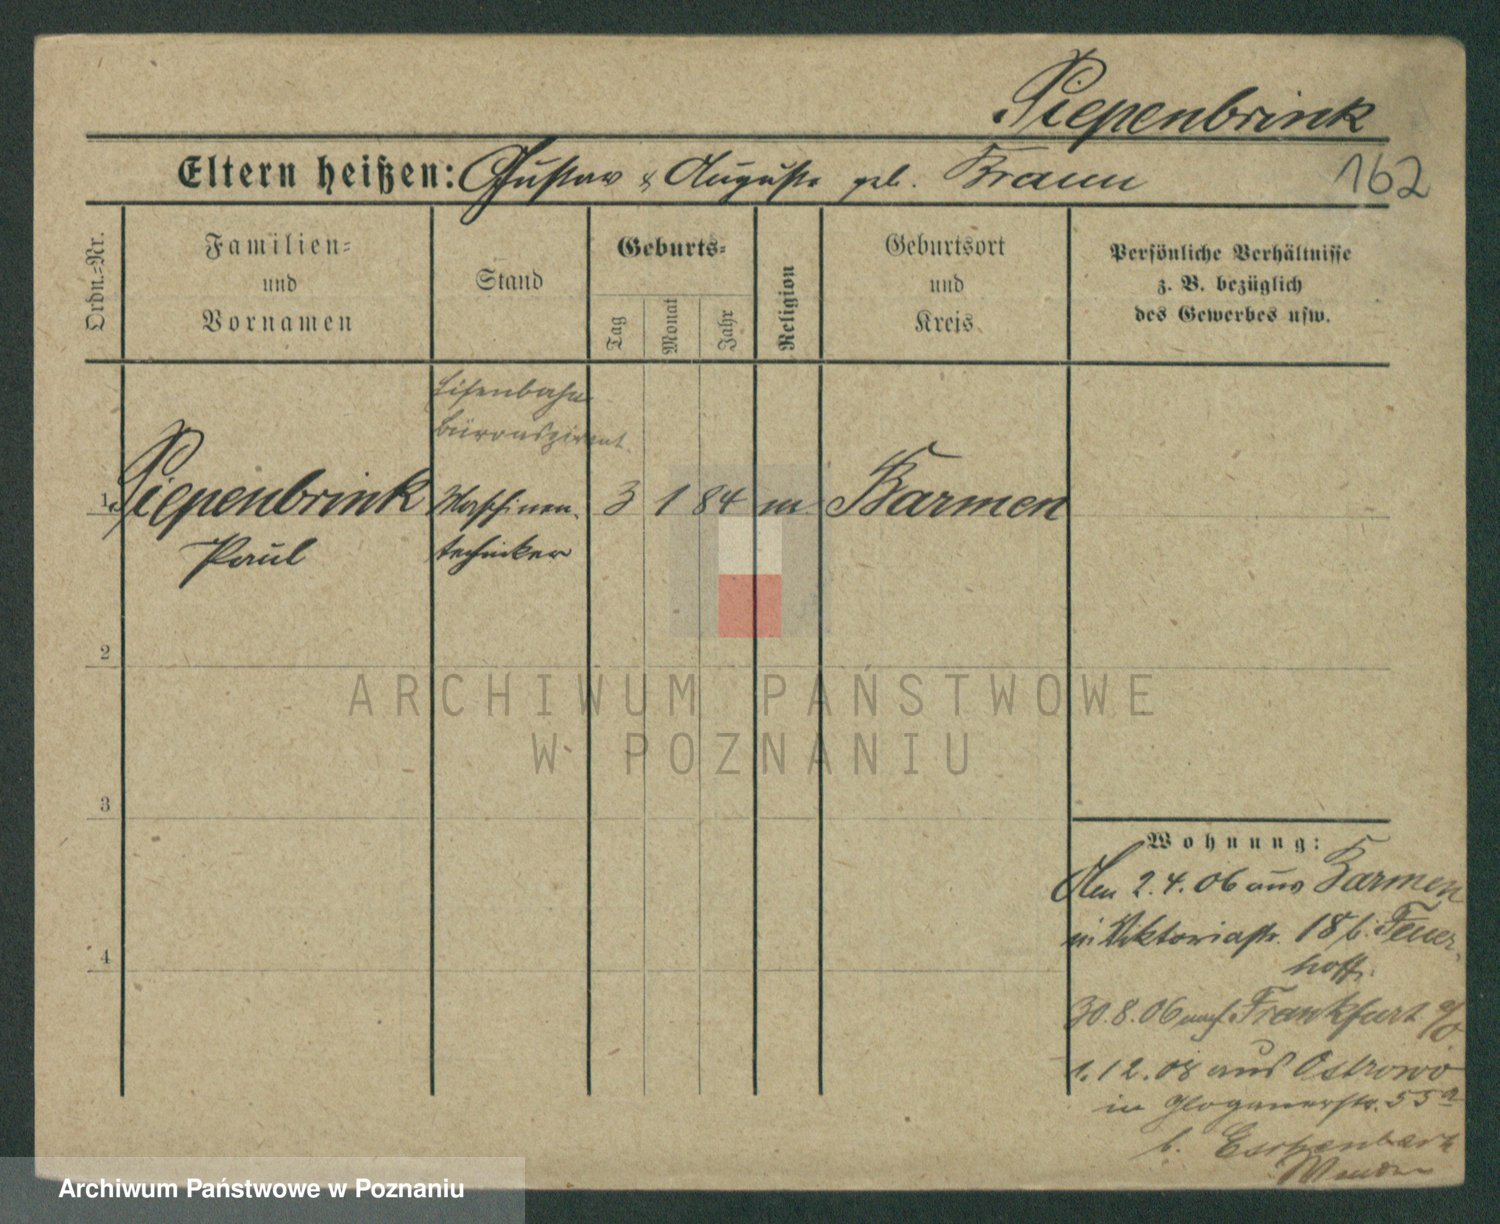 Piepenbrink
Eltern heißen: Gustav & Auguste geb. Braun
162
Ordn.=Nr.
Familien=
und
Vornamen
Stand
Geburts=
Tag
Monat
Jahr
Religion
Geburtsort
und
Kreis
Persönliche Verhältnisse
z. B. bezüglich
des Gewerbes usw.
Eisenbahn
büroaspirant
1. Piepenbrink Maschinen- 3 1 84 Barmen
Paul techniker
2
3
4
Wohnung:
Den 2.4.06 aus Barmen
in Viktoriastr. 18 b. Feuer-
hoff.
30.8.06 nach Frankfurt a/O
1.12.08 aus Ostrowo
in Glogauerstr. 55a
b.
ARCHIWUM PAŃSTWOWE
W POZNANIU
Archiwum Państwowe w Poznaniu